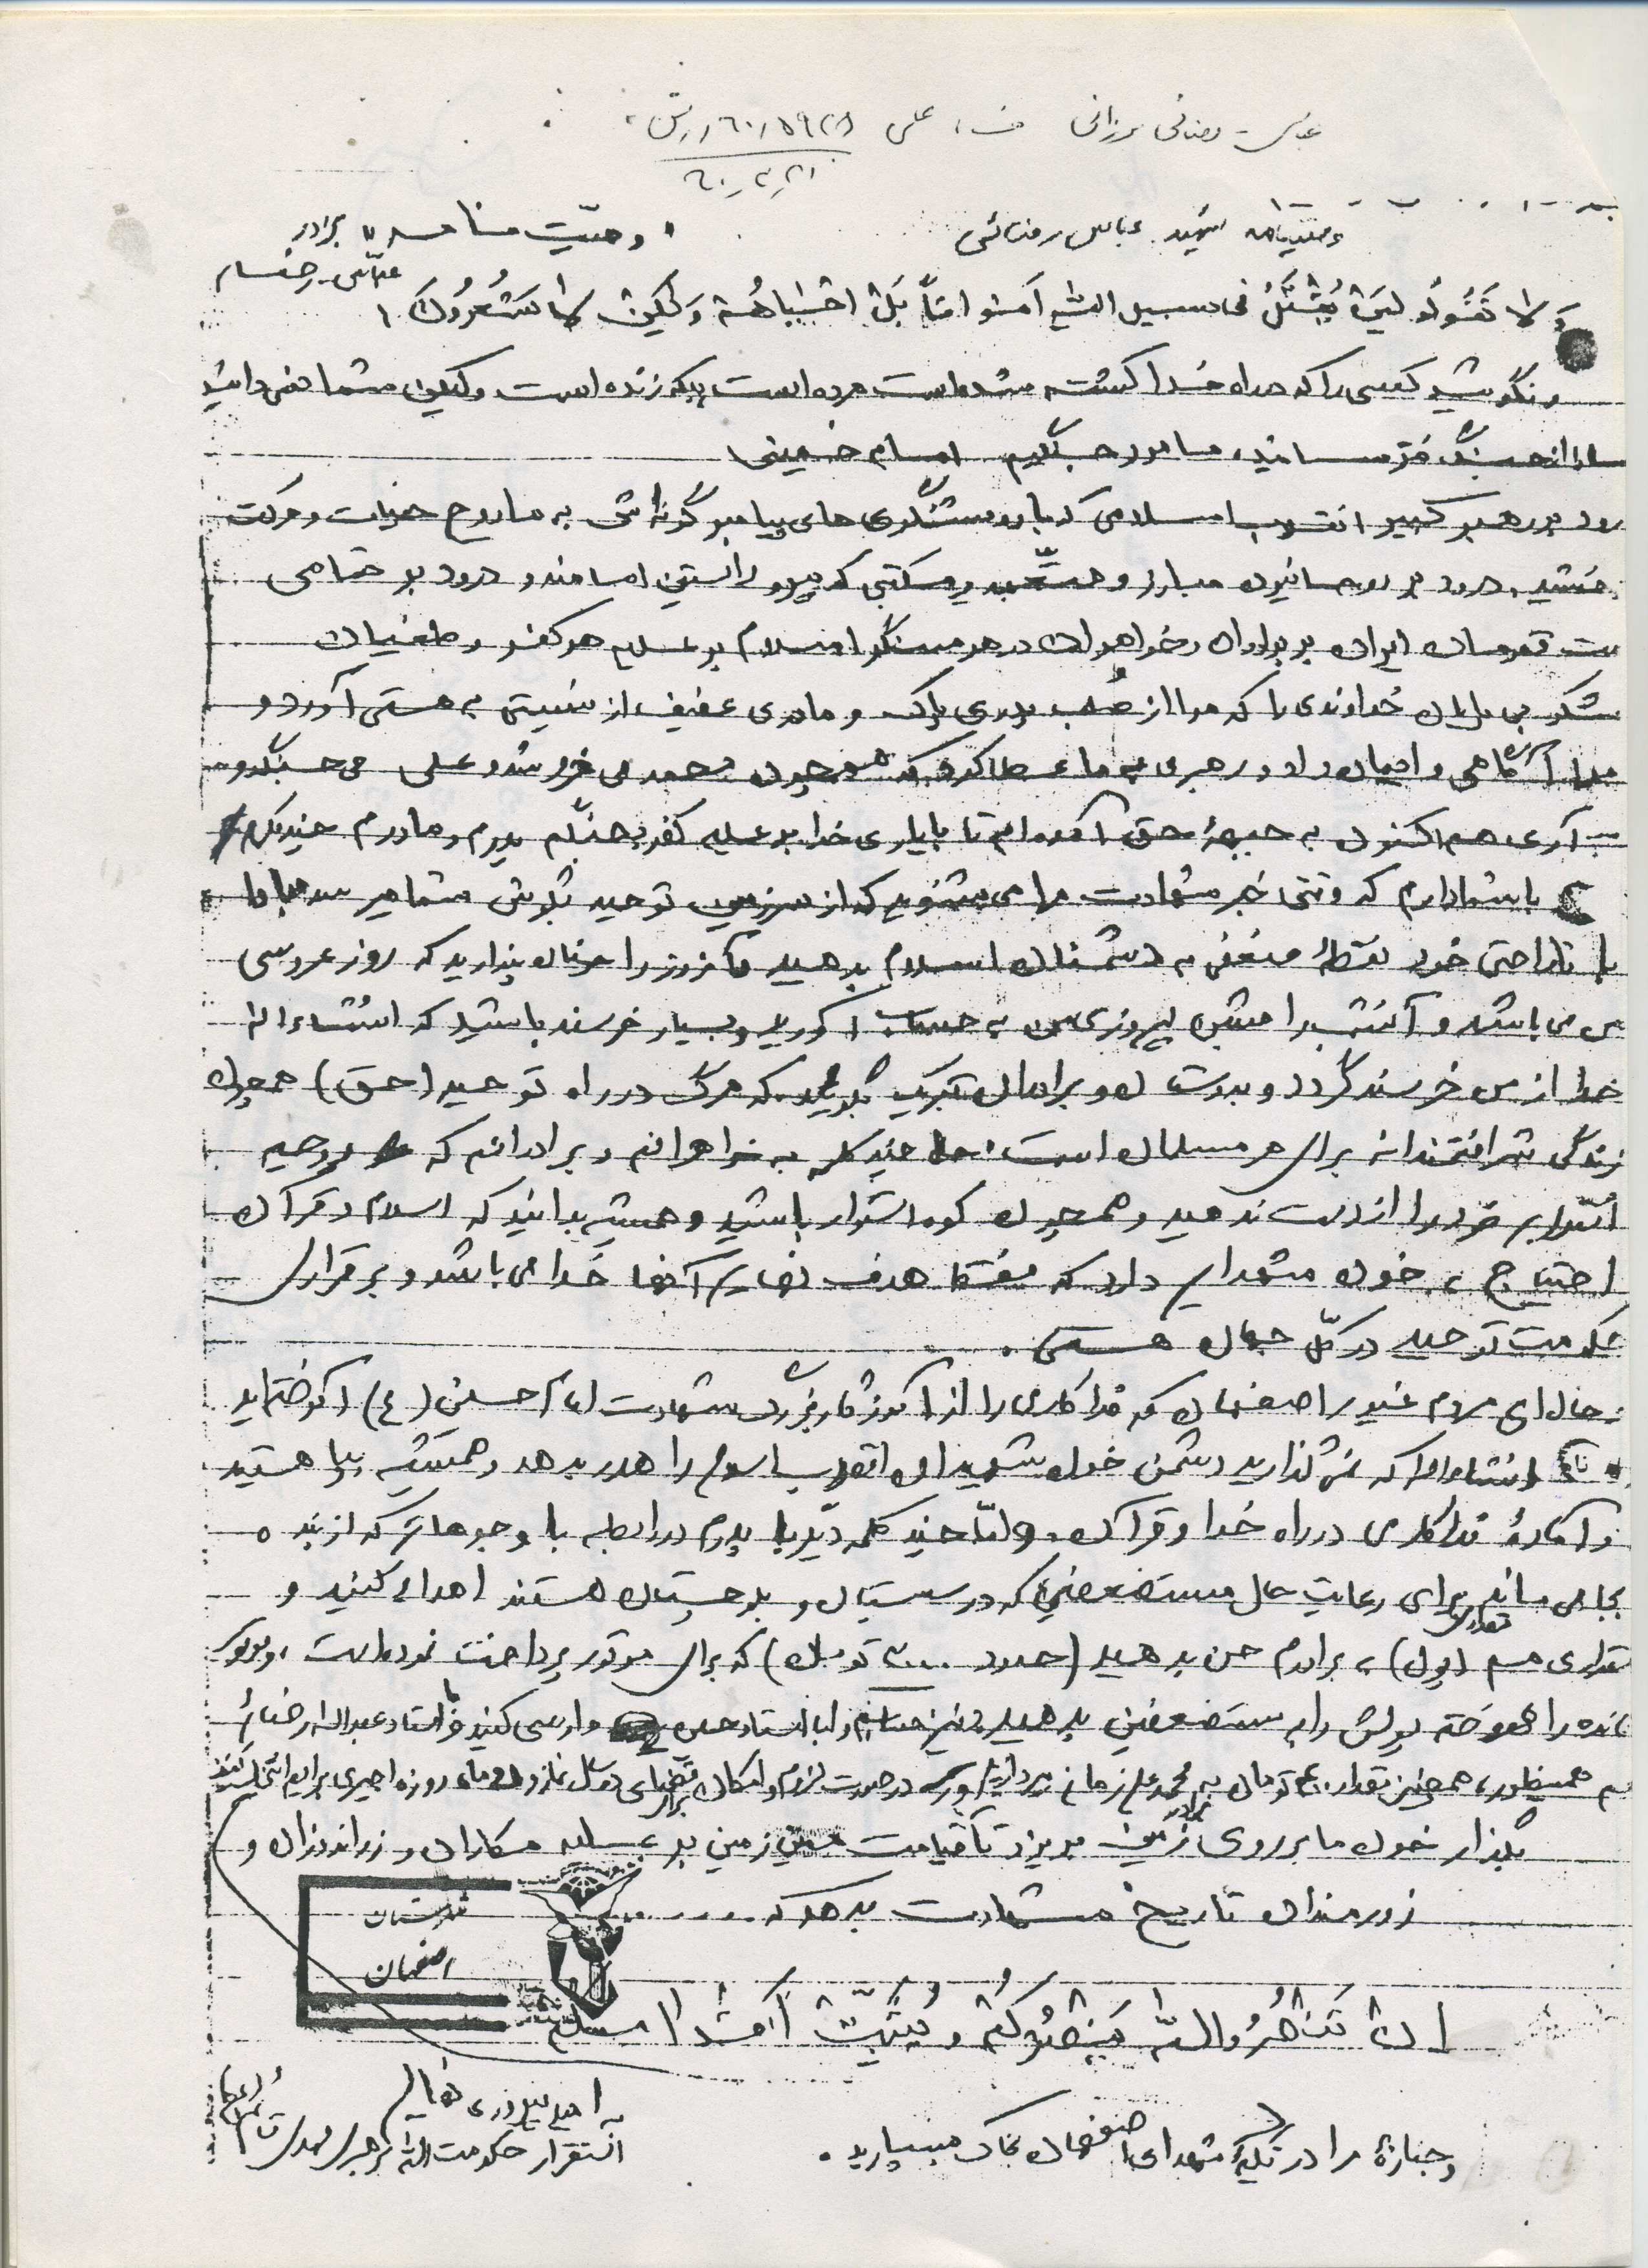 عباس رضائی برزانی علی
وصیتنامه شهید عباس رضائی
وصیت نامه برادر
عباس رضا
وَ لا تَقُولُو لِمَنْ يُقْتَلُ فی سبیل الله اَمواتاً بَلْ احْیاء وَلکِنْ لا تَشْعُرُونَ
و نگوئید کسی را که در راه خدا کشته شده است مرده است بلکه زنده است ولیکن شما نمی دانید
ما را از جنگ نترسانید، ما مرد جنگیم امام خمینی
رود بر رهبر کبیر انقلاب اسلامی که با روشنگری های پیامبر گونه اش به ما روح حیات و حرکت
بخشید. درود بر روحانیون مبارز و متعهد و مکتبی که پیرو راستین امامند و درود بر تمامی
قهرمان ایران بر برادران و خواهران در هر سنگر اسلام بر علیه هر کفر و طغیان
شکر بی پایان خداوندی را که مرا از صُلب پدری پاک و مادری عفیف از نیستی به هستی آورد و
مرا آگاهی و ایمان داد و رهبری به ما عطا کرد که همچون محمد می خروشد و علی می جنگد و
آری هم اکنون به جبههٔ حق آمده ام تا با یاری خدا بر علیه کفر بجنگم پدرم و مادرم چند کلام
با شما دارم که وقتی خبر شهادت مرا می شنوید که از سرزمین توحید بگوش شما میرسد مبادا
با ناراحتی خود نقطهٔ ضعفی به دشمنان اسلام بدهید آنروز را چنان پندارید که روز عروسی
من می باشد و آنشب را جشن پیروزی من به حساب آورید و بسیار خرسند باشید که انشاء الله
خدا از من خرسند گردد و بدوستان و برادران تبریک بگوئید که مرگ در راه توحید (حق) همچون
زندگی شرافتمندانه برای هر مسلمان است. اما چند کلمه به خواهرانم و برادرانم که روحیه
استوار خود را از دست ندهید و همچون کوه استوار باشید و همیشه بدانید که اسلام و قرآن
احتیاج به خون شهدایی دارد که فقط هدف نهایی آنها خدا می باشد و برقراری
حکومت توحید در کلّ جهان هستی.
حال ای مردم غیور اصفهان که فداکاری را از آموزگار بزرگ شهادت امام حسین (ع) آموخته اید
انشاءالله که نمی گذارید دشمن خون شهیدان انقلاب اسلام را هدر بدهد و همیشه پویا هستید
و آمادهٔ فداکاری در راه خدا و قرآن. و امّا چند کلمه دیگر با پدرم در رابطه با وجوهاتی که از بنده
بجا می ماند مقداری برای رعایت حال مستضعفینی که در سیستان و بلوچستان هستند اهداء کنید و
مقداری هم (پول) به برادرم حسن بدهید (حدود تومان) که برای موتور پرداخت نموده است، و موتور
بنده را فروخته پولش را به مستضعفین بدهید و نیز حسابم را با استاد حسن وارسی کنید و با استاد عبدالله رضائی
هم همینطور، همچنین مقدار تومان به محمد علی زمانی بپردازید و در صورت لزوم و امکان برای قضای دو سال نماز و دو ماه روزه اجیری برایم انتخاب کنید
بگذار خون ما بر روی زمین بریزد تا قیامت همین زمین بر علیه مکاران و زراندوزان و
زورمندان تاریخ شهادت بدهد که ....
اِنْ تَنْصُرُوالله یَنْصُرْکُمْ وَ یُثَبِّتْ اَقْدامَکُمْ
شهرستان
اصفهان
به امید پیروزی نهایی
استقرار حکومت الله به رهبری مهدی قائم
و جنازهٔ مرا در تکیهٔ شهدای اصفهان بخاک بسپارید.